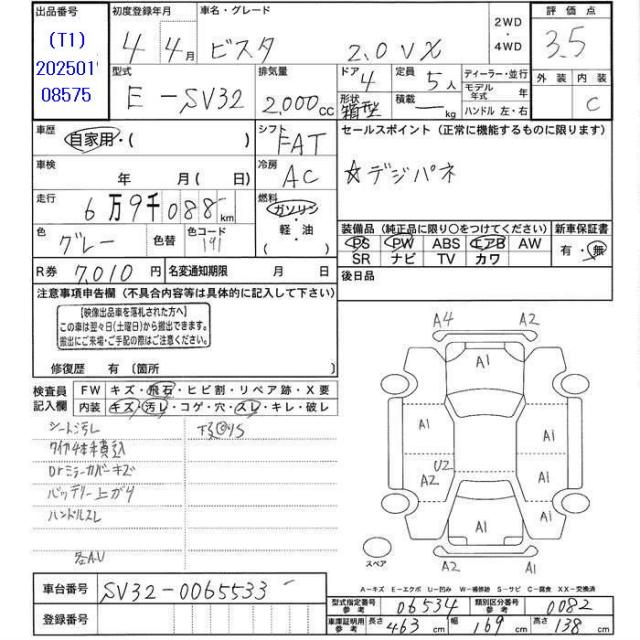 出品番号
(T1)
202501
08575
初度登録年月
4年4月
車名・グレード
ビスタ 2.0 VX
2WD
・
4WD
評価点
3.5
外装 内装
C
型式
E-SV32
排気量
2,000cc
ドア
4
形状
箱型
定員
5人
積載
kg
ディーラー・並行
モデル年式 年
ハンドル 左・右
車歴
自家用・( )
シフト
FAT
車検
年 月( 日)
冷房
AC
走行
6万9千088km
燃料
ガソリン
・
軽・油
色
グレー
色替
色コード
191
R券 7,010円
名変通知期限 月 日
セールスポイント(正常に機能するものに限ります)
☆デジパネ
装備品(純正品に限り○をつけてください)
PS PW ABS エアB AW
SR ナビ TV カワ
新車保証書
有・無
後日品
注意事項申告欄(不具合内容等は具体的に記入して下さい)
【映像出品車を落札された方へ】
この車は翌々日(土曜日)から搬出できます。
搬出にご来場・ご手配の際はご注意ください。
修復歴 有〔箇所
検査員
記入欄
FW キズ・飛石・ヒビ割・リペア跡・X要
内装 キズ・汚レ・コゲ・穴・スレ・キレ・破レ
シート汚レ
タイヤ4本積込
Drミラーカバーキズ
バッテリー上がり
ハンドルスレ
各A.U
A4 A2
A1
A1 A1
A2 U2 A1
A1 A1
A2 A2
スペア
A-キズ E-エクボ U-凹み W-補修跡 S-サビ C-腐食 XX-交換済
車台番号
SV32-0065533
登録番号
型式指定番号 参考 06534
類別区分番号 参考 0082
車庫証明用 参考 長さ 463cm 幅 169cm 高さ 138cm